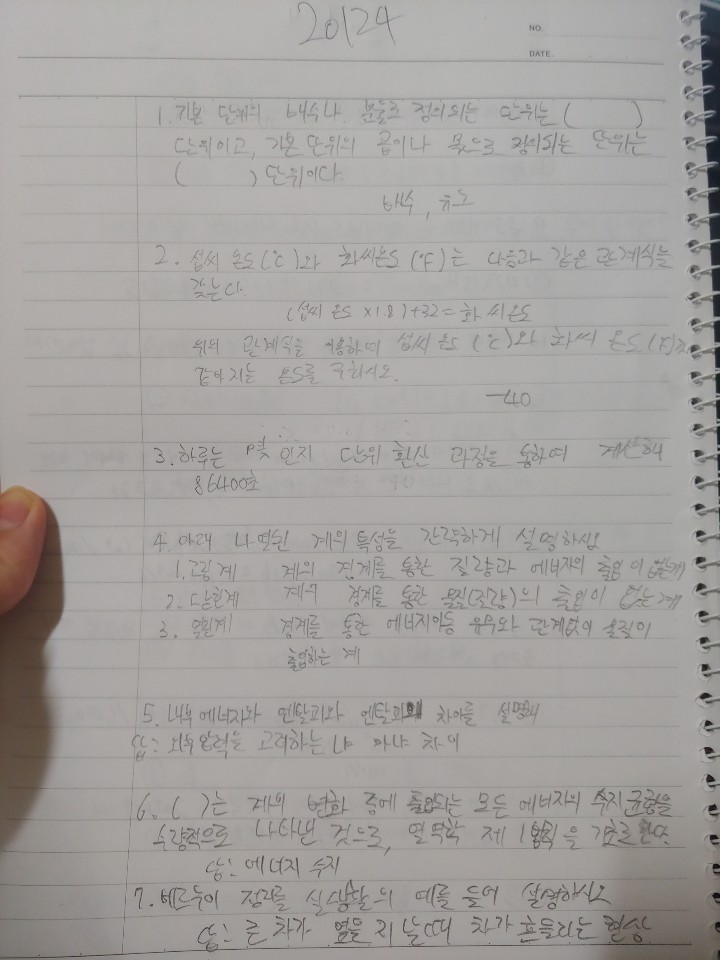 20124
NO.
DATE.
1. 기본 단위의 배수나 분율로 정의되는 단위는 ( )
단위이고, 기본 단위의 곱이나 몫으로 정의되는 단위는
( ) 단위이다.
배수, 유도
2. 섭씨 온도(℃)와 화씨온도(℉)는 다음과 같은 관계식을
갖는다.
(섭씨 온도 ×1.8)+32=화씨온도
위의 관계식을 이용하여 섭씨 온도(℃)와 화씨 온도(℉)가
같아지는 온도를 구하시오.
-40
3. 하루는 몇 초인지 단위 환산 과정을 통하여 계산해
86400초
4. 아래 나열된 계의 특성을 간략하게 설명하시오
1. 고립계 계의 경계를 통한 질량과 에너지의 출입이 없는계
2. 닫힌계 계의 경계를 통한 물질(질량)의 출입이 없는계
3. 열린계 경계를 통한 에너지이동 유무와 관계없이 물질이
출입하는 계
5. 내부에너지와 엔탈피와 엔탈피의 차이를 설명해
답: 외부압력을 고려하느냐 마냐 차이
6. ( )는 계의 변화 중에 출입되는 모든 에너지의 수지균형을
수량적으로 나타낸 것으로, 열역학 제 1법칙을 기초로 한다.
답: 에너지 수지
7. 베르누이 정리를 실생활의 예를 들어 설명하시오
답: 큰 차가 옆을 지날때 차가 흔들리는 현상